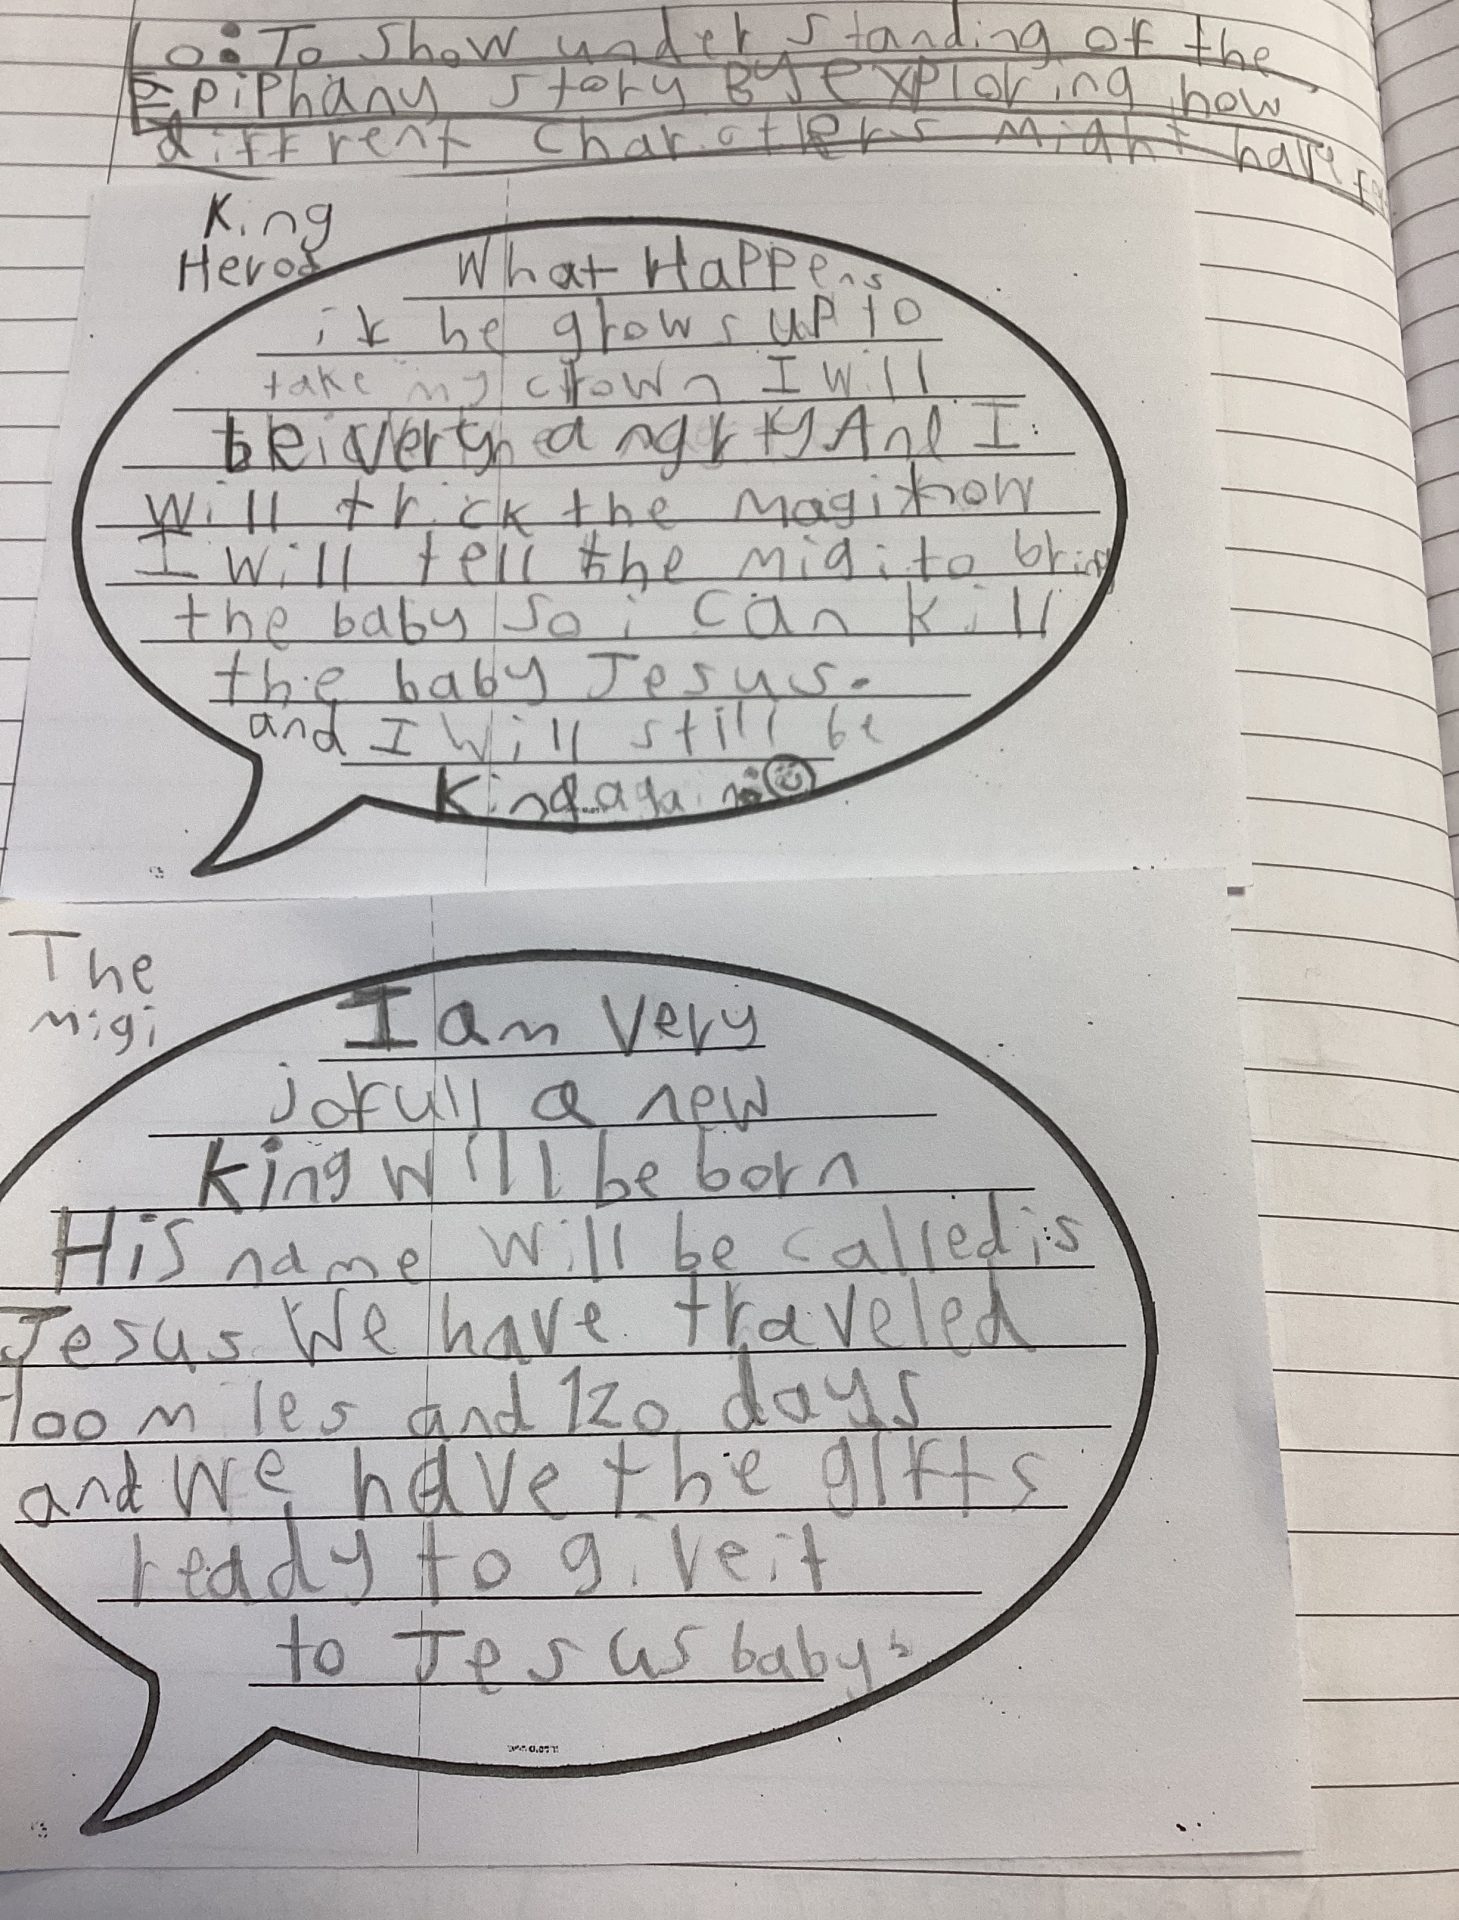 Lo: To show understanding of the
Epiphany story By exploring how
diffrent charactkers might have
King
Herod
What Happens
if he grows up to
take my crown I will
be very angrty And I
will trick the magi now
I will tell the migi to bring
the baby so i can kill
the baby Jesus.
and I will still be
King again
The
migi
I am very
jofull a new
king will be born
His name will be called is
Jesus We have traveled
miles and 120 days
and we have the gifts
ready to give it
to Jesus baby.